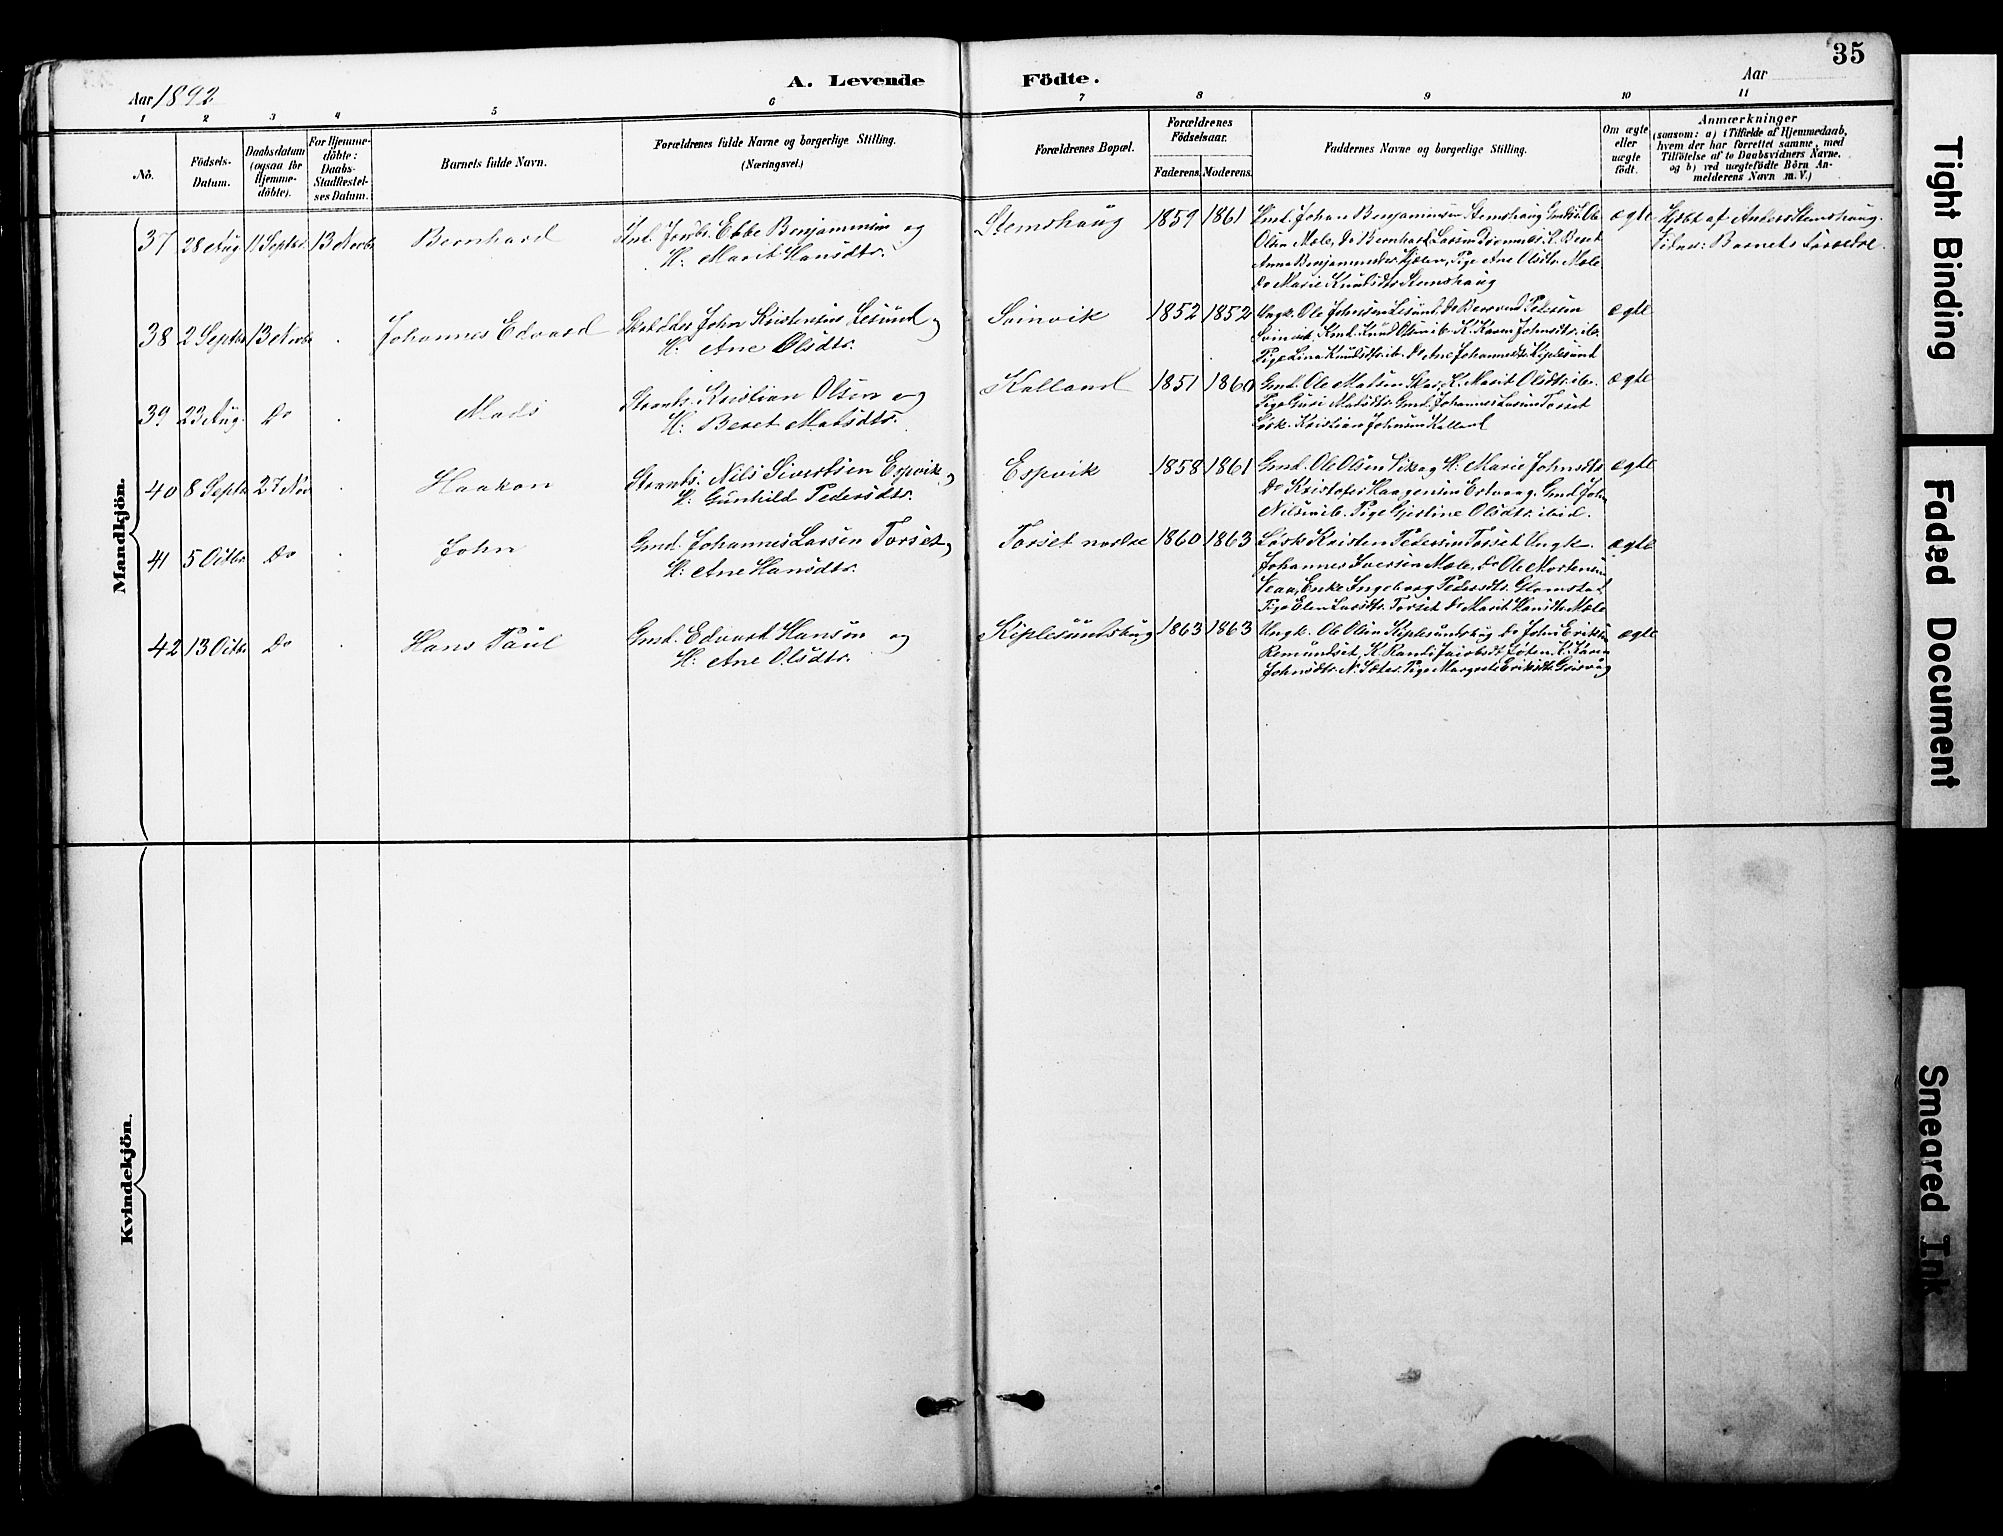 35
A. Levende Födte.
Aar 1892
Aar
1 2 3 4 5 6 7 8 9 10 11
No.
Födsels-
Datum.
Daabsdatum
(ogsaa for
Hjemme-
döbte).
For Hjemme-
döbte:
Daabs-
Stadfæstel-
ses Datum.
Barnets fulde Navn.
Forældrenes fulde Navne og borgerlige Stilling.
(Næringsvei.)
Forældrenes Bopæl.
Forældrenes
Födselsaar.
Faderens. Moderens.
Faddernes Navne og borgerlige Stilling.
Om ægte
eller
uægte
födt.
Anmærkninger
(saasom: a) i Tilfælde af Hjemmedaab,
hvem der har forrettet samme, med
Tilföielse af to Daabsvidners Navne,
og b) ved uægtefödte Börn An-
melderens Navn m. V.)
Mandkjön.
37 28 Aug. 11 Septbr. 13 Novbr. Bernhard
Ebbe Benjaminsen og
H: Marit Hansdtr.
Stemshaug 1859 1861
Gmd. Johan Benjaminsen Stemshaug
Olsen Mele, Do Bernhard Larsen K. Beret
Pige Ane Olsdtr. Mele
Do Marie Knudsdtr. Stemshaug
ægte
af Anders Stemshaug.
Barnets Forældre.
38 2 Septbr 13 Novbr . Johannes Edvard
John Kristensen Lesund og
H: Ane Olsdtr.
Svinvik 1852 1852
Ungk. Ole Johnsen Lesund, Do Berend Petersen
Svinvik, Gmd. Knud Olsen ib. K. Karen Johnsdtr. ib.
Pige Lina Knudsdtr. ib. Do Ane Johannesdtr. Kiplesund
ægte
39 23 Aug. Do . Mads
Strands. Kristian Olsen og
H: Beret Matsdtr.
Kalland 1851 1860
Gmd. Ole Matsen K. Marit Olsdtr. ib.
Pige Guri Matsdtr. Gmd. Johannes Larsen Torset
Løsk. Kristian Johnsen Kalland
ægte
40 8 Septbr 27 Nov . Haakon
Strands. Nils Sivertsen Espvik og
H. Gunhild Pedersdtr.
Espvik 1858 1861
Gmd. Ole Olsen og H: Marie Johnsdtr
Do Kristofer Haagensen Gmd. John
Nilsen ib. Pige Gjertine Olsdtr. ibid.
ægte
41 5 Octbr. Do . John
Gmd. Johannes Larsen Torset og
H: Ane Hansdtr.
Torset nordre 1860 1863
Løsk. Kristen Pedersen Torset Ungk.
Johannes Iversen Mele, Do Ole Mortensen
Enke Ingeborg Pedersdtr. Glomstad
Pige Elen Larsdtr. Torset Do Marit Hansdtr. Mele
ægte
42 13 Octbr. Do . Hans Paul
Gmd. Edvard Hansen og
H. Ane Olsdtr.
Kiplesundshug 1863 1863
Ungk. Ole Olsen Kiplesundshug Do John Eriksen
Romundset, K. Randi Jacobsdt. K. Karen
Johnsdtr. N. Sæter. Pige Margrete Eriksdtr. Grisvåg
ægte
Kvindekjön.
Tight Binding
Faded Document
Smeared Ink